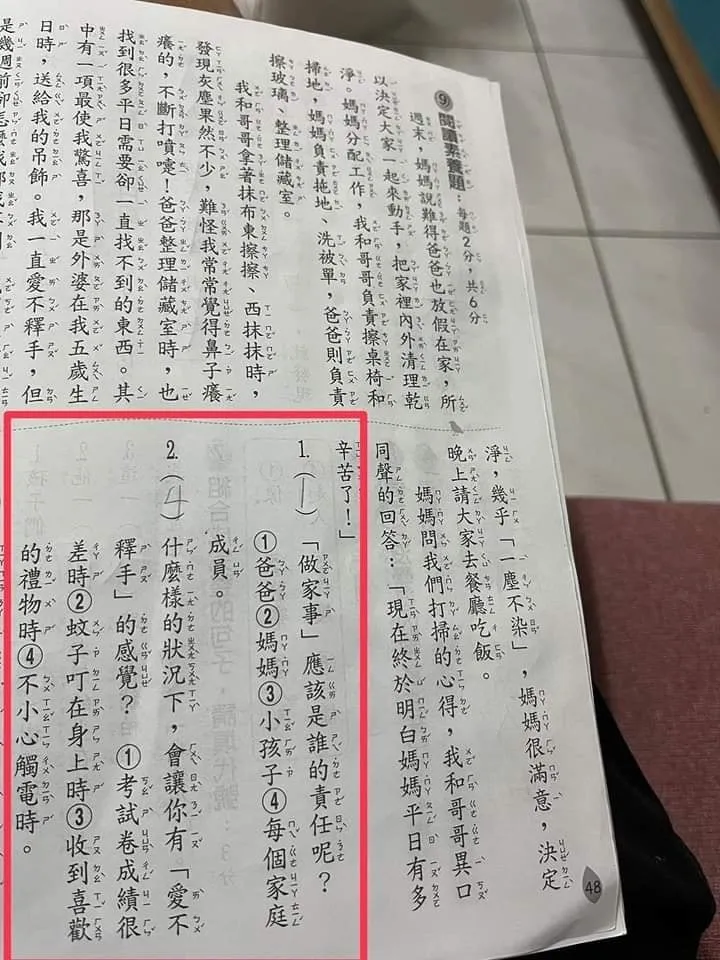 ⑨閱讀素養題：每題2分，共6分
週末，媽媽說難得爸爸也放假在家，所
以決定大家一起來動手，把家裡內外清理乾
淨。媽媽分配工作，我和哥哥負責擦桌椅和
掃地，媽媽負責拖地、洗被單，爸爸則負責
擦玻璃、整理儲藏室。
我和哥哥拿著抹布東擦擦、西抹抹時，
發現灰塵果然不少，難怪我常常覺得鼻子癢
癢的，不斷打噴嚏！爸爸整理儲藏室時，也
找到很多平日需要卻一直找不到的東西。其
中有一項最使我驚喜，那是外婆在我五歲生
日時，送給我的吊飾。我一直愛不釋手，但
是幾週前卻怎麼找都找不到
淨，幾乎「一塵不染」，媽媽很滿意，決定
晚上請大家去餐廳吃飯。
媽媽問我們打掃的心得，我和哥哥異口
同聲的回答：「現在終於明白媽媽平日有多
辛苦了！」
1.（1）「做家事」應該是誰的責任呢？
①爸爸②媽媽③小孩子④每個家庭
成員。
2.（4）什麼樣的狀況下，會讓你有「愛不
釋手」的感覺？①考試卷成績很
差時②蚊子叮在身上時③收到喜歡
的禮物時④不小心觸電時。
48